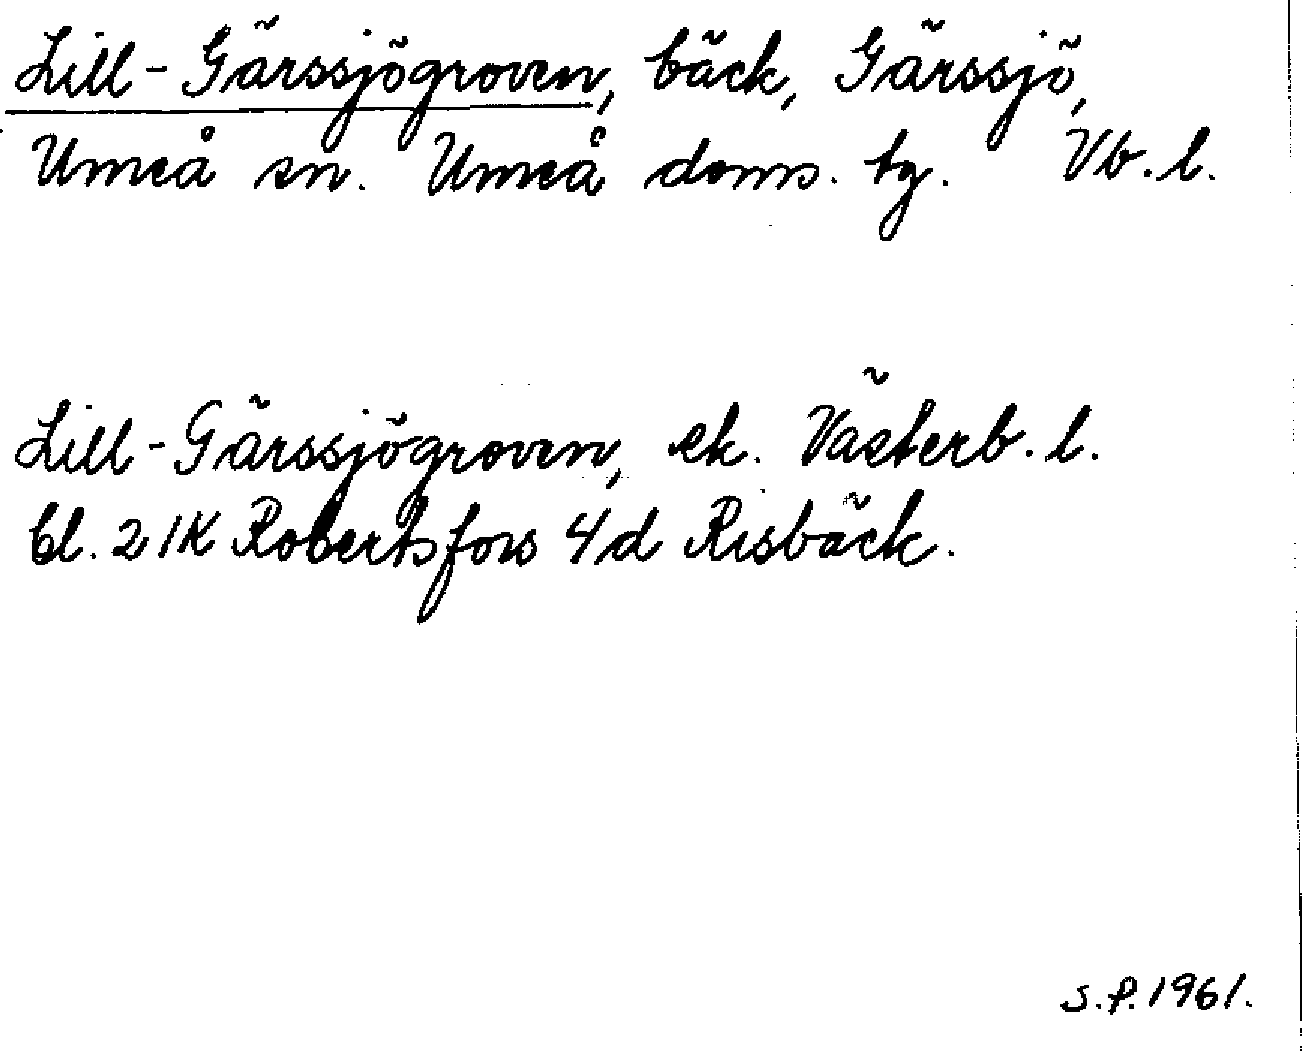 Lill-Gärssjögroven, bäck, Gärssjö,
Umeå sn. Umeå doms. tg. Vb. l.
Lill-Gärssjögroven, ek. Västerb. l.
bl. 21K Robertsfors 4d Risbäck.
S.P. 1961.